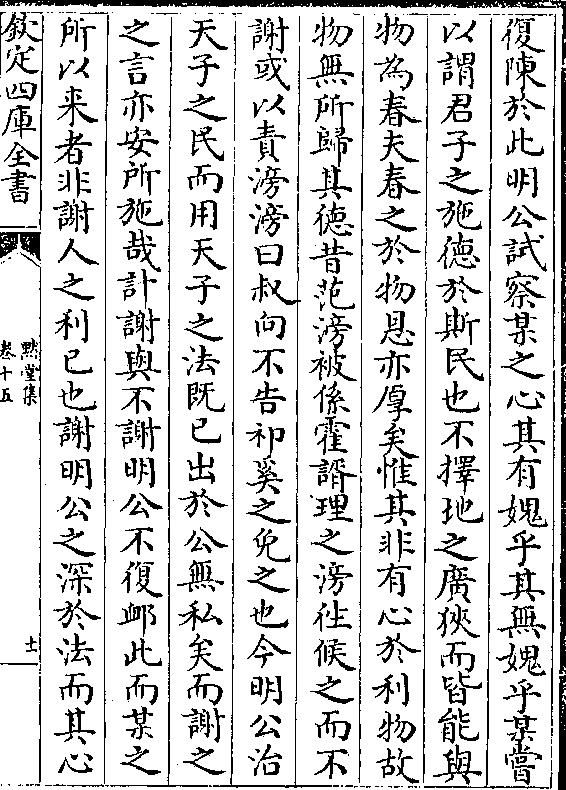 復陳於此明公試察某之心其有媿乎其無媿乎某嘗
以謂君子之施德於斯民也不擇地之廣狹而皆能與
物為春夫春之於物恩亦厚矣惟其非有心於利物故
物無所歸其德昔范滂被係霍諝理之滂往候之而不
謝或以責滂滂曰叔向不告祁奚之免之也今明公治
天子之民而用天子之法既已出於公無私矣而謝之
之言亦安所施哉計謝與不謝明公不復衈此而某之
所以来者非謝人之利已也謝明公之深於法而其心
欽定四庫全書
默堂集
卷十五
士